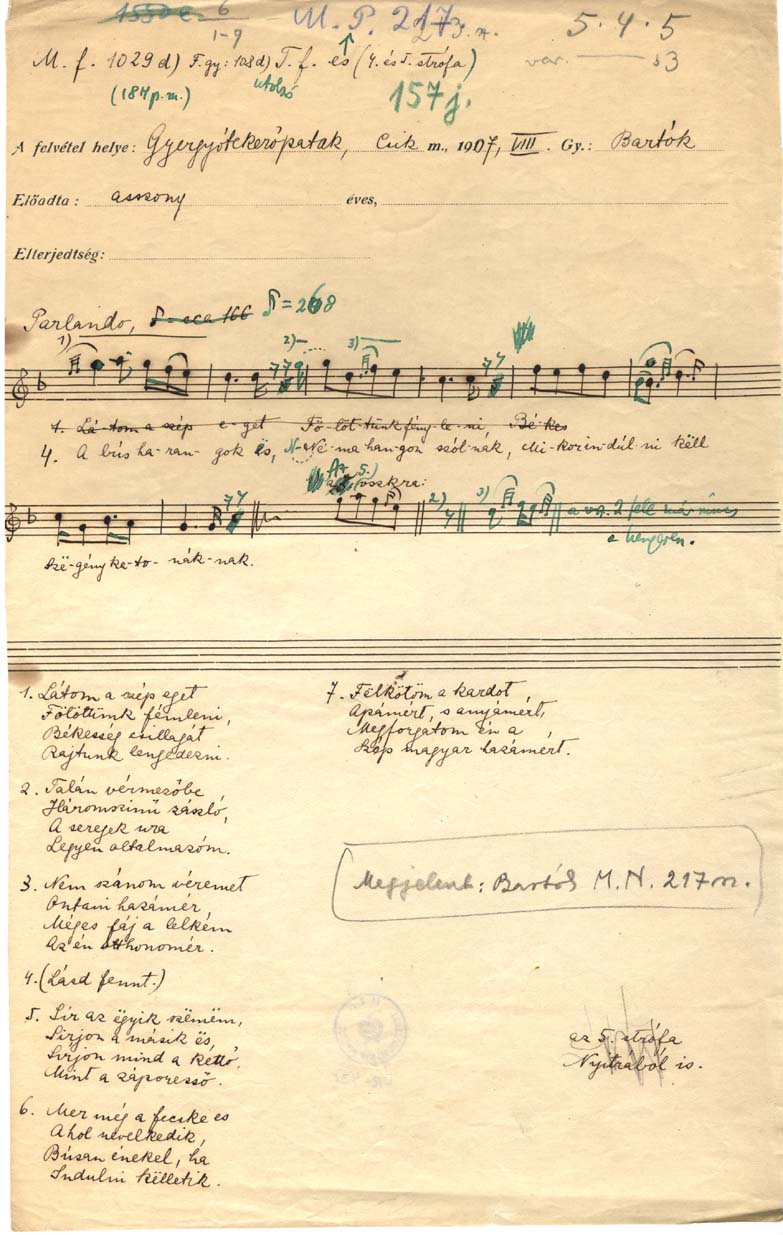 1550 e. 6
1-9
M. P. 217.
5. 4. 5
M. f. 1029 d) F. gy: 108 d) T. f. és (4. és 5. strófa)
utolsó
var. 53
(184 p. m.)
157 j.
A felvétel helye: Gyergyótekerőpatak, Csik m., 1907, VIII. Gy.: Bartók
Előadta: asszony éves,
Elterjedtség:
Parlando, ♪ = cca 166 ♪ = 268
1) 2) 3)
1. Lá-tom a szép e-get Fö-löt-tünk fény-le-ni, Bé-kes
4. A bús ha-ran-gok ës, N-Né-ma han-gon szól-nak, Mi-kor in-dúl-ni këll
Az 5.) szakra:
2) 3) a vsz. 2 fele már nincs
a hengeren.
Szë-gény ka-to-nák-nak.
1. Látom a szép eget
Fölöttünk fémleni,
Békesség csillagát
Rajtunk lengedezni.
2. Talán vérmezőbe
Háromszinű zászló,
A seregek ura
Legyen oltalmazóm.
3. Nem szánom véremet
Ontani hazámér
Méges fáj a lelkëm
Az én otthonomér.
4. (Lásd fennt.)
5. Sír az ëgyik szëmëm,
Sírjon a másik ës,
Sirjon mind a kettő,
Mint a záporesső.
6. Mer még a fecske es
Ahol nevelkedik,
Búsan énekel, ha
Indulni këlletik.
7. Felkötöm a kardot,
Apámért, s anyámért,
Megforgatom én a,
Szép magyar hazámért.
Megjelent: Bartók M. N. 217 sz.
az 5. strófa
Nyitrából is.